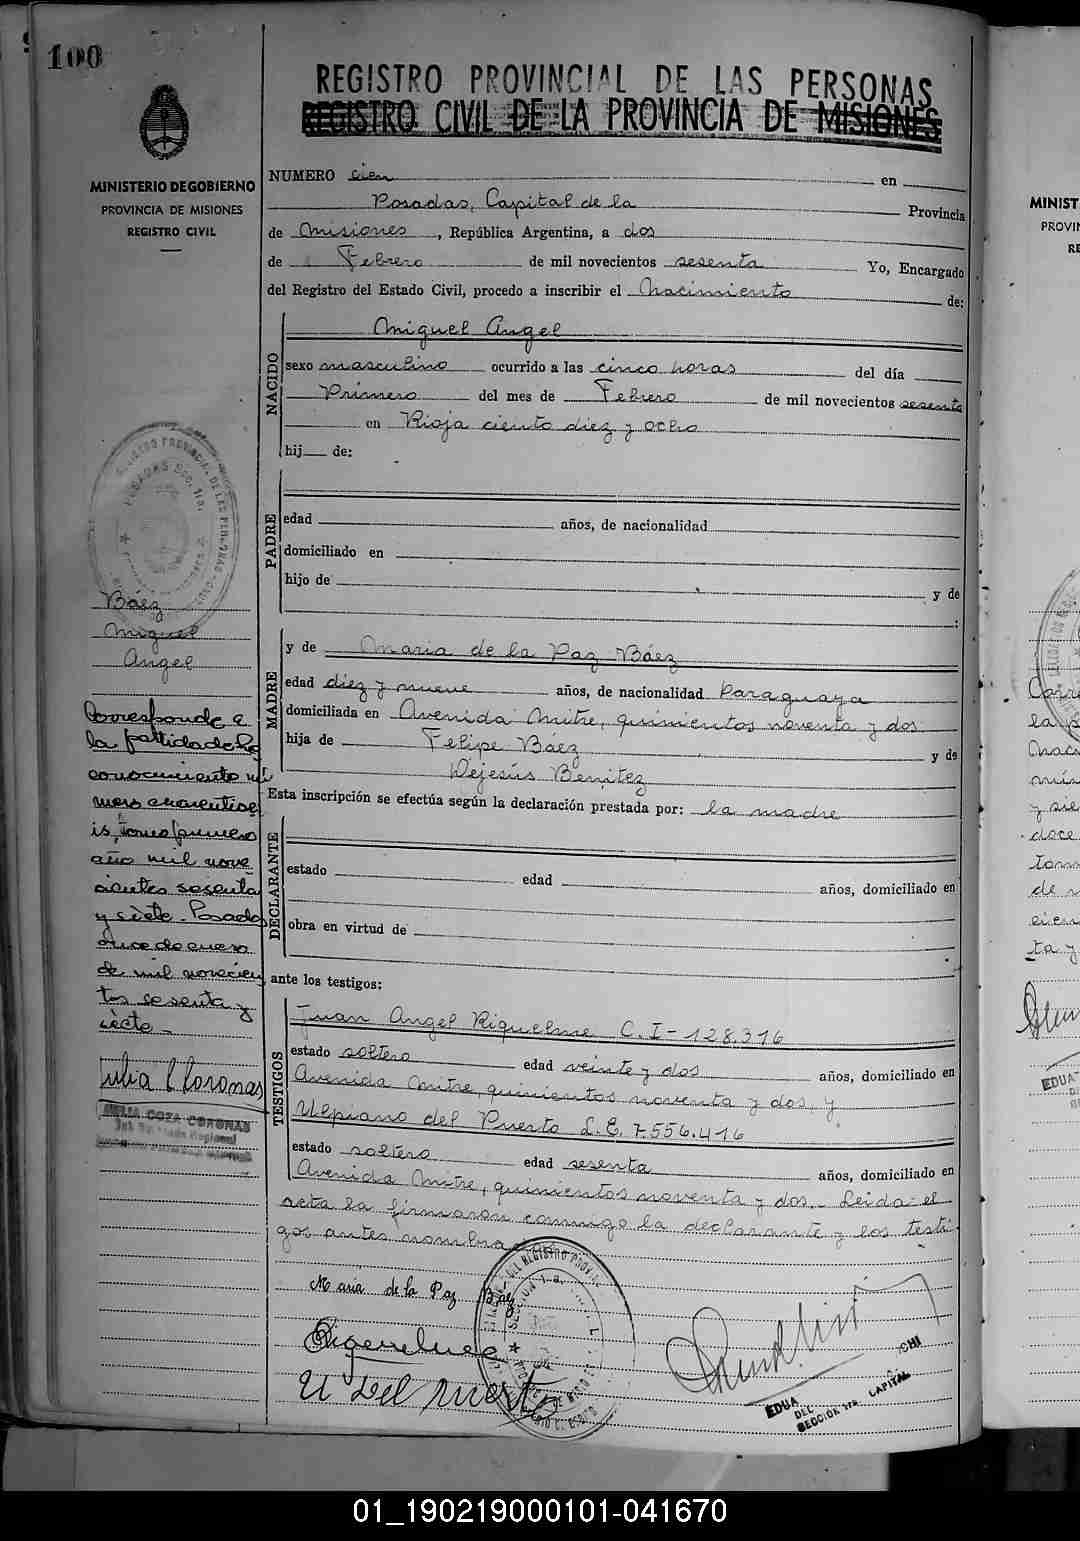 100
REGISTRO PROVINCIAL DE LAS PERSONAS
REGISTRO CIVIL DE LA PROVINCIA DE MISIONES
MINISTERIO DE GOBIERNO
PROVINCIA DE MISIONES
REGISTRO CIVIL
NUMERO cien en
Posadas, Capital de la Provincia
de Misiones, República Argentina, a dos
de Febrero de mil novecientos sesenta Yo, Encargado
del Registro del Estado Civil, procedo a inscribir el Nacimiento de:
NACIDO
Miguel Angel
sexo masculino ocurrido a las cinco horas del día
Primero del mes de Febrero de mil novecientos sesenta
en Rioja ciento diez y ocho
hij de:
PADRE
edad años, de nacionalidad
domiciliado en
hijo de y de
:
MADRE
y de Maria de la Paz Báez
edad diez y nueve años, de nacionalidad Paraguaya
domiciliada en Avenida Mitre, quinientos noventa y dos
hija de Felipe Báez y de
Dejesús Benitez
Esta inscripción se efectúa según la declaración prestada por: la madre
DECLARANTE
estado edad años, domiciliado en
obra en virtud de
ante los testigos:
TESTIGOS
Juan Angel Riquelme C.I-128.316
estado soltero edad veinte y dos años, domiciliado en
Avenida Mitre, quinientos noventa y dos, y
Ulpiano del Puerto L.E. 7.556.416
estado soltero edad sesenta años, domiciliado en
Avenida Mitre, quinientos noventa y dos. Leida el
acta la firmaron conmigo la declarante y los testi
gos antes nombra
Maria de la Paz Báez
Riquelme
U del Puerto
EDUA CHI
DEL
SECCIÓN 1ra CAPITAL
Báez
Miguel
Angel
Corresponde a
la partida de Re
conocimiento nú
mero cuarentise
is, tomo primero
año mil nove
cientos sesenta
y siete. Posadas
once de enero
de mil novecien
tos sesenta y
siete.
Julia C Coronas
JULIA COZA CORONAS
MINIST
PROVIN
RE
01_190219000101-041670